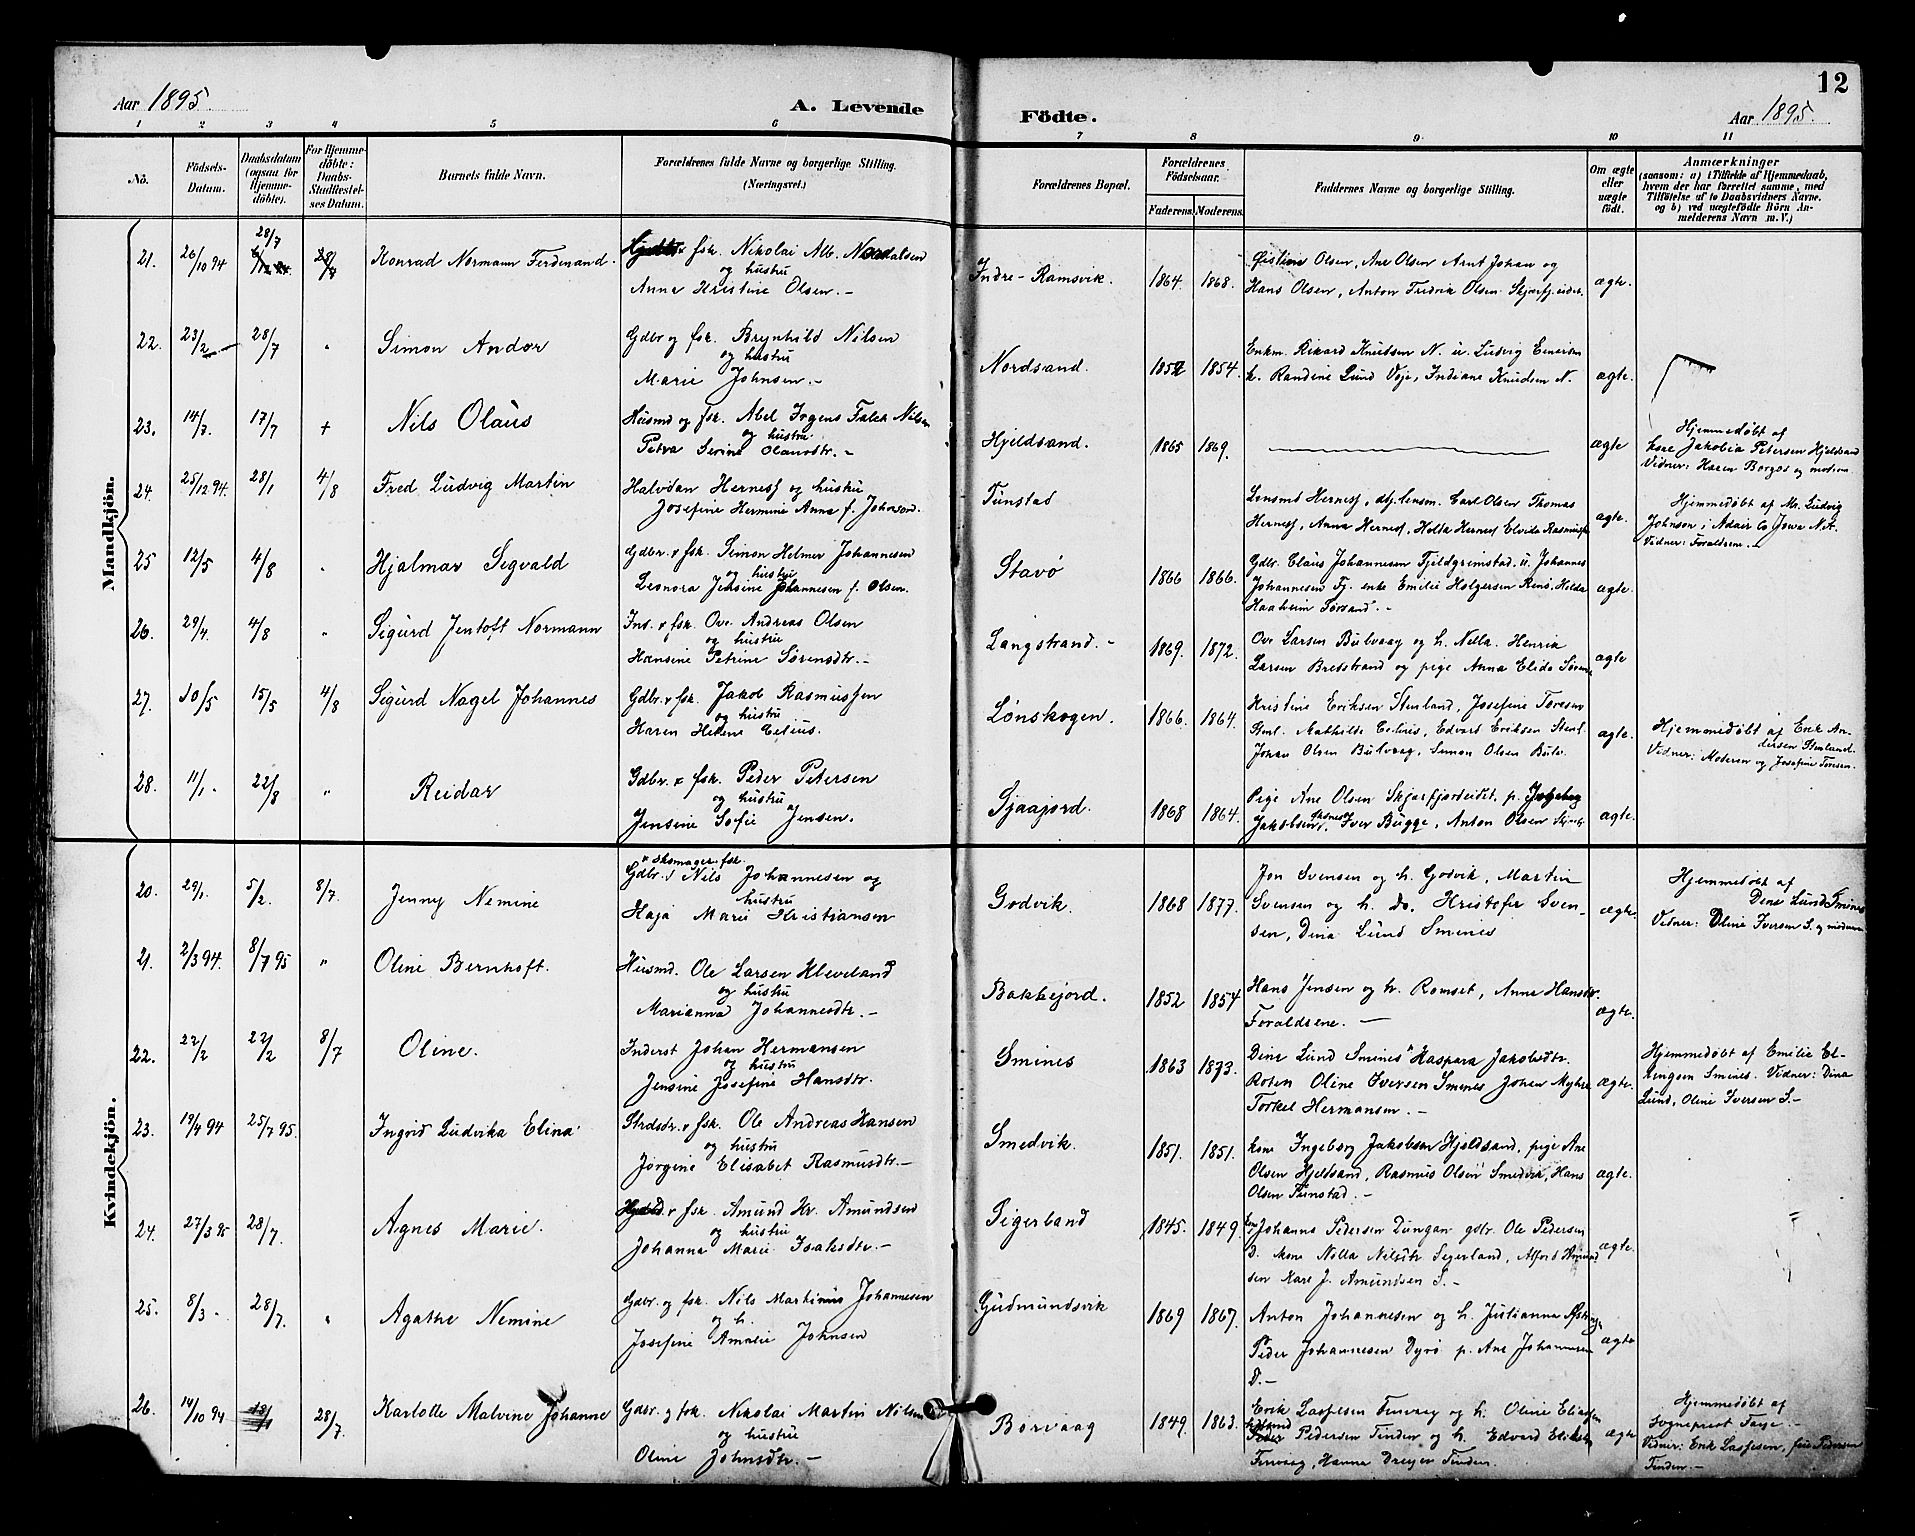 12
Aar 1895.
A. Levende Födte.
Aar 1895.
1 2 3 4 5 6 7 8 9 10 11
No.
Födsels-Datum.
Daabsdatum (ogsaa for Hjemmedöbte).
For Hjemmedöbte: Daabs-Stadfestelses Datum.
Barnets fulde Navn.
Forældrenes fulde Navne og borgerlige Stilling. (Næringsvei.)
Forældrenes Bopæl.
Forældrenes Födselsaar.
Faderens. Moderens.
Faddernes Navne og borgerlige Stilling.
Om ægte eller uægte födt.
Anmærkninger
(saasom: a) i Tilfælde af Hjemmedaab, hvem der har forrettet samme, med Tilföielse af to Daabsvidners Navne. og b) ved uægtefödte Börn Anmelderens Navn m. V.)
Mandkjön.
21. 26/10 94 28/7 Konrad Normann Ferdinand. fsk. Nikolai Alb. Nordalsen
og hustru
Anna Kristine Olsen.-
Indre-Ramsvik. 1864. 1868. Olsen, Ane Olsen Arnt Johan og
Hans Olsen, Anton Fredrik Olsen ægte.
22. 23/2 28/7 " Simon Andor Gdbr og fsk. Brynhild Nilsen
og hustru
Marie Johnsen.-
Nordsand. 1852 1854. Enkm. Rikard Knudsen N. u. Ludvig Einersen
k. Randine Lund Voje, Indiane Knudsen N. ægte.
23. 14/7. 17/7 + Nils Olaus Husmd og fsk. Abel Irgens Falck Nilsen
og hustru
Petra Serine Olausdtr.-
Hjeldsand. 1865 1869. ægte
Hjemmedøbt af
kone Jakobia Petersen Hjeldsand
Vidner: Karen Borgos og moderen
24. 25/12 94. 28/1 4/8 Fred Ludvig Martin Halvdan Herness og hustru
Josefine Hermine Anna f. Johnson.
Tunstad Lensmd Herness, Carl Olsen Thomas
Herness, Anna Herness, Helta Herness Elvida Rasmussen ægte.
Hjemmedøbt af Mr. Ludvig
Johnson i Adair Co Jowa N.A.
Vidner: Forældrene.-
25 12/5 4/8 " Hjalmar Sigvald Gdbr. v fsk. Simon Helmer Johannesen
og hustru
Leonora Jensine Johannesen f. Olsen.
Stavø 1866 1866. Gdbr. Claus Johannesen Fjeldgrimstad. u. Johannes
Johannesen Fj. enke Emilie Holgersen Renø. Helda
Haaheim Forsand.- ægte.
26. 29/4. 4/8 " Sigurd Jentoft Normann Ins. v fsk. Ove Andreas Olsen
og hustru
Hansine Petrine Sørensdtr.-
Langstrand.- 1869. 1872. Ove Larsen Bulvaag og h. Nella. Henrik
Larsen Bredstrand og pige Anna Elida ægte
27. 10/5 15/5 4/8 Sigurd Nagel Johannes Gdbr. v fsk. Jakob Rasmussen
og hustru
Karen Helene Celius.
Lønskogen. 1866. 1864. Kristine Eriksen Stenland, Josefine Toresen
Stenl. Mathilde Celius, Edvart Eriksen Stenl.
Johan Olsen Bulvaag, Simon Olsen Bulv. ægte.
Hjemmedøbt af Erik An-
dersen Stenland.
Vidner: Moderen og Josefine Toresen.
28. 11/1. 22/8 " Reidar Gdbr. v fsk. Peder Petersen
og hustru
Jensine Sofie Jensen.
Gjaajord. 1868 1864. Pige Ane Olsen Skjærfjordeidet. p. Ingeborg
Jakobsen, Iver Bugge, Anton Olsen ægte.
Kvindekjön.
20. 29/1. 5/2. 8/7. Jenny Nemine v skomager fsk.
Gdbr. Nils Johannesen og
hustru
Kaja Marie Kristiansen
Godvik. 1868 1877. Jon Svensen og h. Godvik, Martin
Svensen og h. do. Kristofer Sven-
sen, Dina Lund Smines ægte.
Hjemmedøbt af
Dina Lund Smines
Vidner: Oline Iversen S. og moderen
21. 2/3 94. 8/7 95 " Oline Bernhoft. Husmd. Ole Larsen Kleveland
og hustru
Marianna Johannesdtr.-
Bakkejord. 1852 1854 Hans Jensen og h. Romset, Anne Hansdtr.
Forældrene.- ægte.
22. 22/2 22/2 8/7 Oline. Inderst Johan Hermansen
og hustru
Jensine Josefine Hansdtr.
Smines 1863 1873. Dina Lund Smines Kaspara Jakobsdtr.
Roten Oline Iversen Smines Johan Myhre
Torkel Hermansen.- ægte.
Hjemmedøbt af Emilie El-
lingsen Smines. Vidner: Dina
Lund, Oline Iversen S.-
23. 19/4 94 25/7 95. Ingrid Ludvika Elina Strdsdr. v fsk. Ole Andreas Hansen
og hustru
Jørgine Elisabet Rasmusdtr.-
Smedvik. 1851. 1851. kone Ingeborg Jakobsen Hjeldsand, pige Ane
Olsen Hjeldsand, Rasmus Olsen Smedvik, Hans
Olsen Tunstad.- ægte.
24. 27/3 95 28/7. Agnes Marie. v fsk. Amund Kr. Amundsen
og hustru
Johanna Marie Isaksdtr.-
Sigerland 1845. 1849 Johanna Pedersen Dungan gdbr. Ole Pedersen
D. kone Nella Nilsdtr Sigerland, Alfred Amund-
sen Kare J. Amundsen S.- ægte.
25. 8/3. 28/7. " Agathe Nemine Gdbr. og fsk. Nils Martinus Johannesen
og h.
Josefine Amalie Johnsen
Gudmundsvik 1869 1867. Anton Johannesen og h. Julianna
Peder Johannesen Dyrø p. Ane Johannesen
D.- ægte
26. 14/10 94 28/7. Karlotte Malvine Johanne Gdbr. og fsk. Nikolai Martin Nilsen
og hustru
Oline Johnsdtr.-
Børvaag 1849. 1863. Erik Lassesen Finvaag og h. Oline Eliassen
Pedersen Finden og h. Edvard
Finvaag, Hanna Dreyer Finden. ægte
Hjemmedøbt af
Sogneprest
Vidner: Erik Lassesen, Pedersen
Finden.-